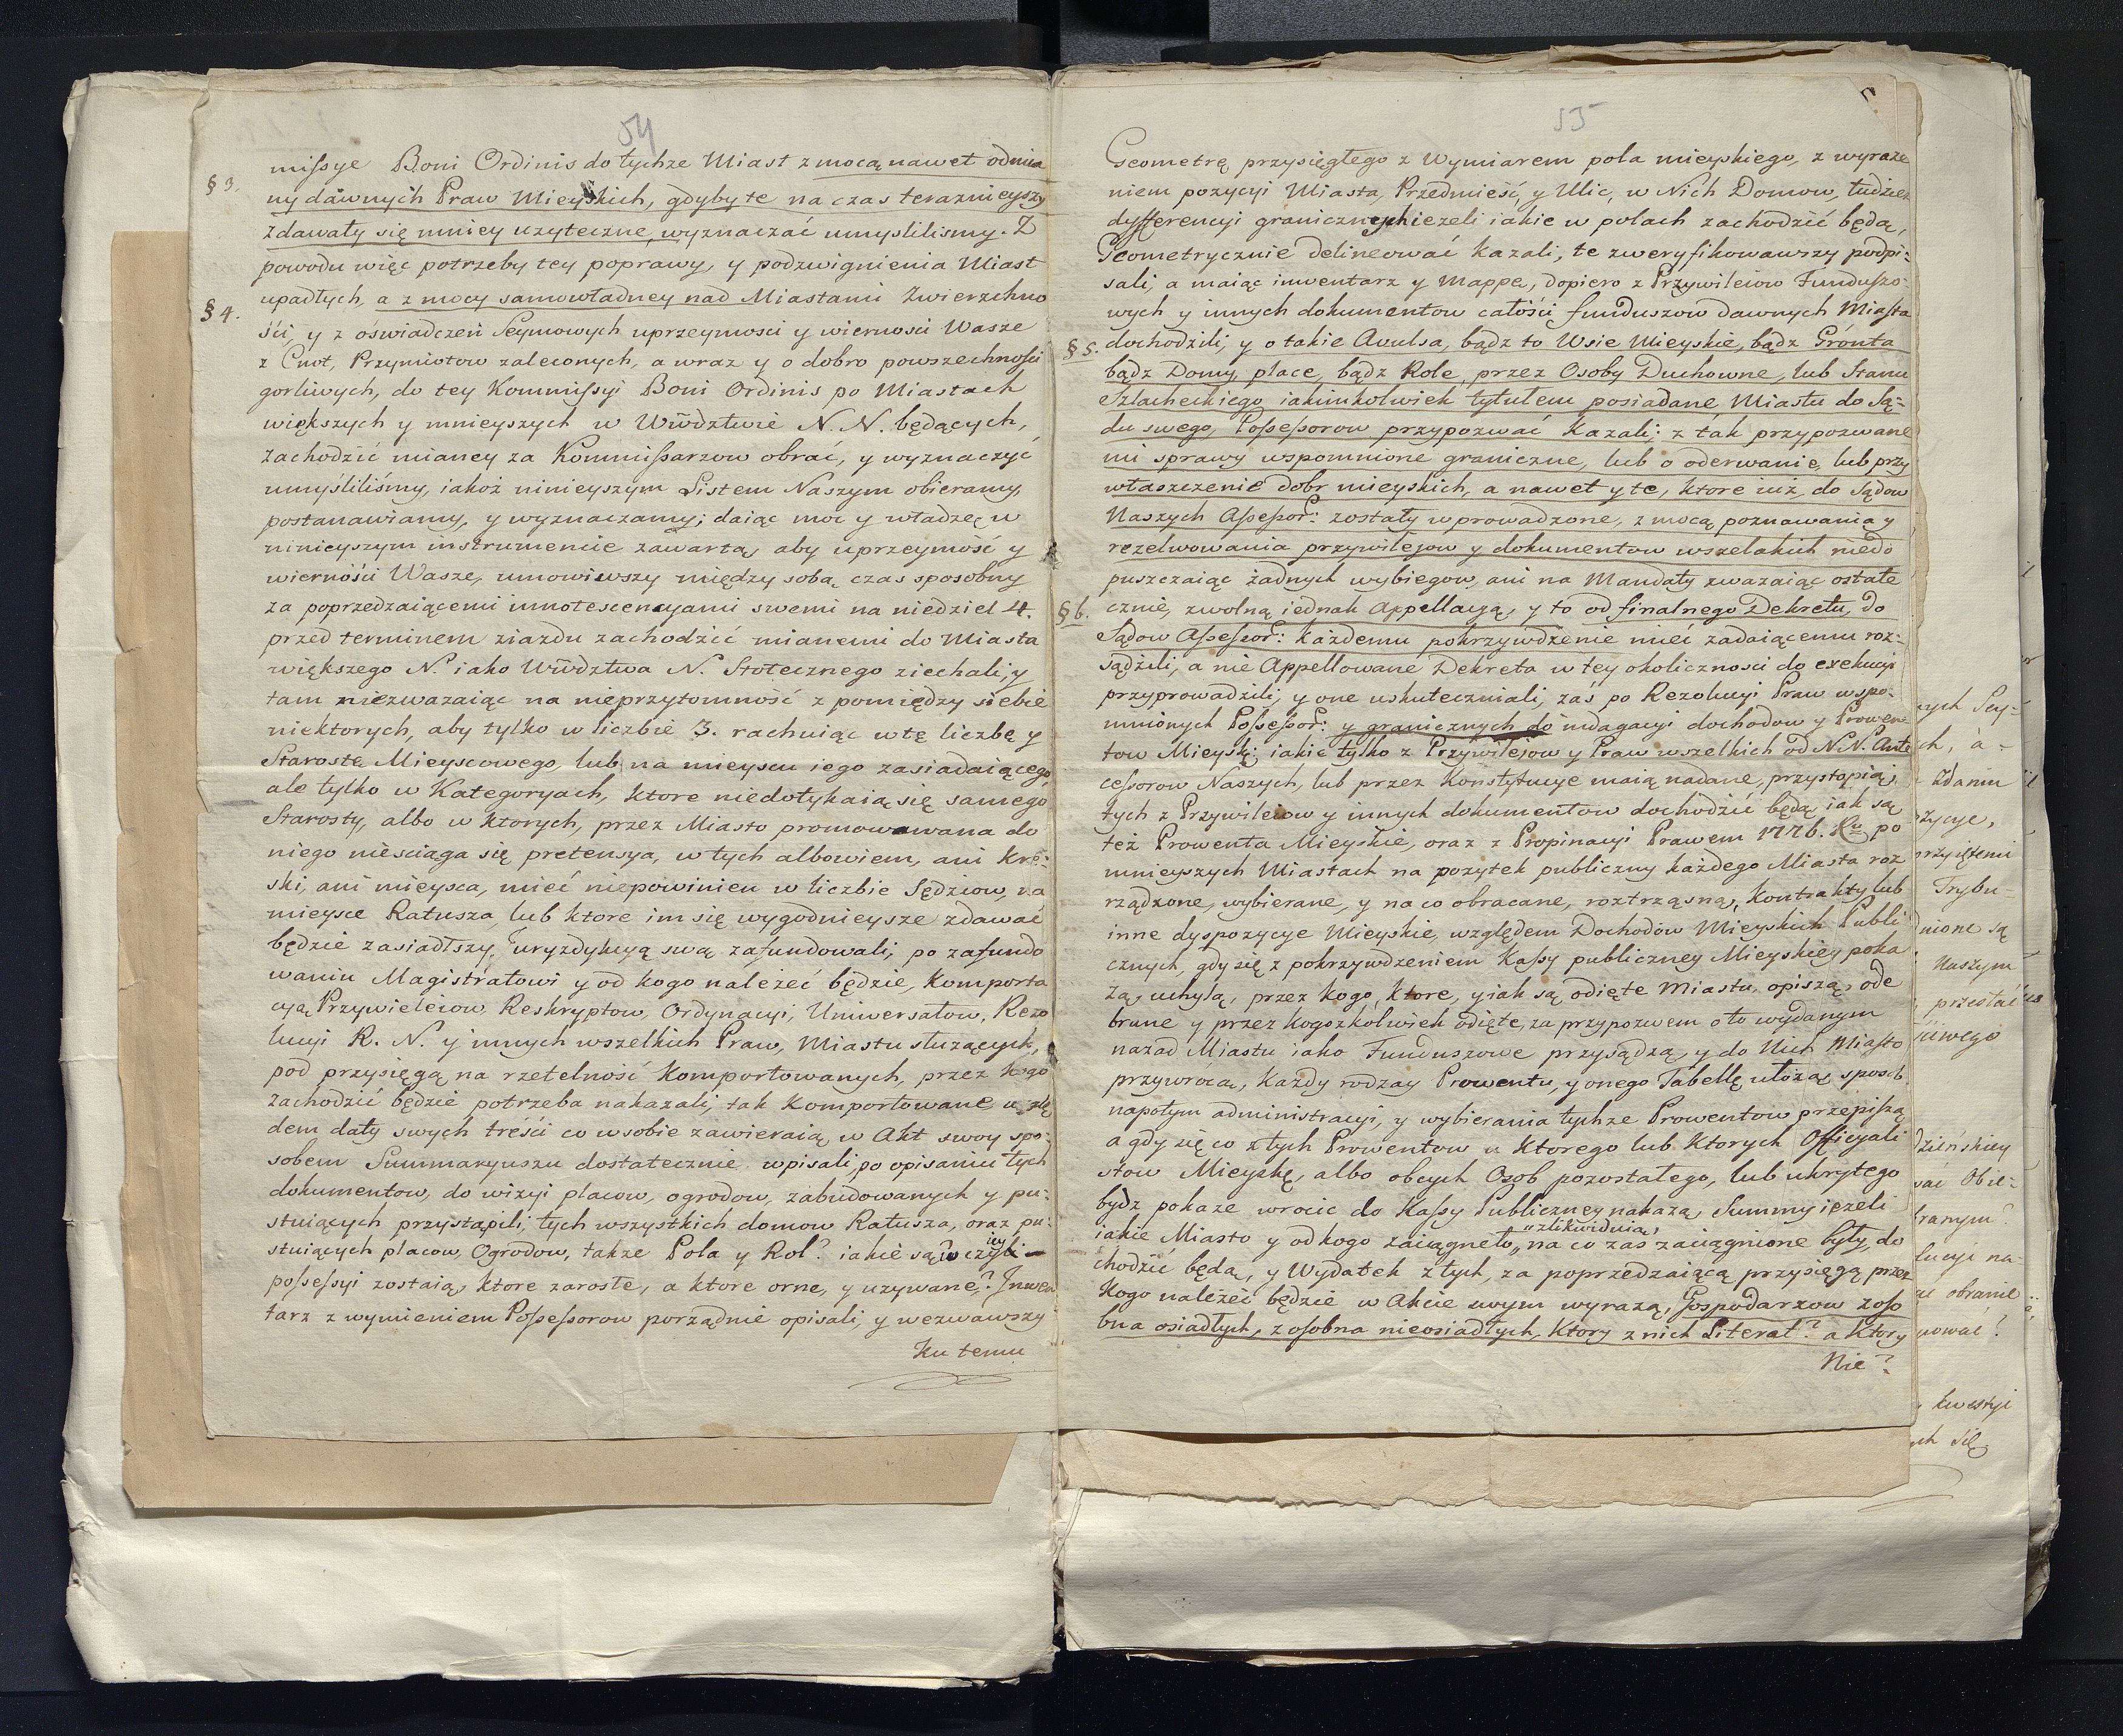 54
missye Boni Ordinis do tychze Miast z mocą nawet odmia
§ 3.
ny dawnych Praw Mieyskich, gdyby te na czas teraznieyszy
zdawały się mniey uzyteczne, wyznaczać umyslilismy. Z
powodu więc potrzeby tey poprawy, y podzwignienia Miast
upadłych, a z mocy samowładney nad Miastami Zwierzchno
§ 4.
ści, y z oświadczeń Seymowych uprzeymosci y wiernosci Wasze
z Cnot, Przymiotow zaleconych, a wraz y o dobro powszechnosci
gorliwych, do tey Kommissyi Boni Ordinis po Miastach
większych y mnieyszych w Wwdztwie N. N. będących,
zachodzić mianey za Kommissarzow obrać, y wyznaczyć
umyśliliśmy, iakoż ninieyszym Listem Naszym obieramy,
postanawiamy, y wyznaczamy; daiąc moc y władzę w
ninieyszym instrumencie zawartą, aby uprzeymość y
wierności Wasze, umowiwszy między sobą czas sposobny
za poprzedzaiącemi innotescencyami swemi na niedziel 4.
przed terminem ziazdu zachodzić mianemi do Miasta
większego N. iako Wwdztwa N. Stołecznego ziechali, y
tam niezwazaiąc na nieprzytomność z pomiędzy siebie
niektorych, aby tylko w liczbie 3. rachuiąc w tę liczbę y
Starostę Mieyscowego, lub na mieyscu iego zasiadaiącego,
ale tylko w Kategoryach, ktore niedotykaią się samego
Starosty, albo w ktorych, przez Miasto promowawana do
niego nieściąga się pretensya, w tych albowiem, ani kre:
ski, ani mieysca, mieć niepowinien w liczbie Sędziow, na
mieysce Ratusza, lub ktore im się wygodnieysze zdawać
będzie zasiadłszy, Juryzdykcyą swą zafundowali, po zafundo
waniu Magistratowi y od kogo należeć będzie, komporta
cyą Przywieleiow, Reskryptow, Ordynacyi, Uniwersałow, Rezo
lucyi R. N. y innych wszelkich Praw, Miastu służących,
pod przysięgą na rzetelność komportowanych, przez kogo
zachodzić będzie potrzeba nakazali, tak komportowane wzglę
dem daty swych treści co w sobie zawieraią w Akt swoy spo:
sobem Summaryuszu dostatecznie wpisali, po opisaniu tych
dokumentow, do wizyi placow, ogrodow, zabudowanych y pu:
stuiących przystąpili, tych wszystkich domow Ratusza, oraz pu:
stuiących placow, Ogrodow, takze Pola y Rol? iakie są? w czyiey
possessyi zostaią, ktore zarosłe, a ktore orne, y uzywane? Inwen
tarz z wymieniem Possessorow porządnie opisali, y wezwawszy
Ku temu
55
Geometrę przysięgłego z Wymiarem pola mieyskiego, z wyraże
niem pozycyi Miasta, Przedmieść, y Ulic, w Nich Domow, tudziesz
dyfferencyi granicznych iezeli iakie w polach zachodzić będą,
Geometrycznie delineować kazali, te zweryfikowawszy podpi:
sali, a maiąc inwentarz y mappę, dopiero z Przywileiow Funduszo:
wych y innych dokumentow całości funduszow dawnych Miasta
§ 5.
dochodzili, y o takie Avulsa, bądz to Wsie Mieyskie, bądz Gronta
bądz Domy, place, bądz Role, przez Osoby Duchowne, lub Stanu
Szlacheckiego iakimkolwiek tytułem posiadane, Miastu do Są:
du swego, Possessorow przypozwać kazali; z tak przypozwane
mi sprawy wspomnione graniczne, lub o oderwanie, lub przy
właszczenie dobr mieyskich, a nawet y te, ktore iuż do Sądow
Naszych Assessor: zostały wprowadzone, z mocą poznawania y
rezelwowania przywilejow y dokumentow wszelakich niedo
puszczaiąc żadnych wybiegow, ani na Mandaty zwazaiąc ostate
§ 6.
cznie, zwolną iednak Appellacyą, y to od finalnego Dekretu, do
Sądow Assessor: kazdemu pokrzywdzenie mieć zadaiącemu roz:
sądzili, a nie Appellowane Dekreta w tey okoliczności do exekucyi
przyprowadzili, y one uskuteczniali, zas po Rezolucyi Praw wspo:
mnionych Possessor: y granicznych do indagacyi dochodow y Prowen
tow Mieyskị, iakie tylko z Przywilejow y Praw wszelkich od N.N. Ante
cessorow Naszych, lub przez Konstytucye maią nadane, przystąpią,
tych z Przywileiow y innych dokumentow dochodzić będą, iak są
też Prowenta Mieyskie, oraz z Propinacyi Prawem 1776. Ru po
mnieyszych Miastach na pozytek publiczny każdego Miasta roz
rządzone, wybierane, y na co obracane, roztrząsną, Kontrakty lub
inne dyspozycye Mieyskie, względem Dochodow Mieyskich Publi
cznych, gdy się z pokrzywdzeniem Kassy publiczney Mieyskiey poka
żą, uchylą, przez kogo, ktore, y iak są odięte Miastu, opiszą, ode
brane y przez kogozkolwiek odięte, za przypozwem o to wydanym
nazad Miastu iako Funduszowe przysądzą, y do Nich Miasto
przywrocą, Każdy rodzay Prowentu, y onego Tabellę ułożą, sposob
napotym administracyi, y wybierania tychże Prowentow przepiszą
a gdy się co z tych Prowentow u Ktorego lub Ktorych Officyali
stow Mieyskę, albo obcych Osob pozostałego, lub ukrytego
bydz pokaze wrocic do Kassy Publiczney nakazą, Summy ieżeli
„zlikwiduią,
iakie Miasto y od kogo zaciągneło, „na co zaś zaciągnione były, do
chodzić będą, y Wydatek z tych, za poprzedzaiącą przysięgą przez
Kogo należeć będzie w Akcie swym wyrazą, Gospodarzow zoso
bna osiadłych, z osobna nieosiadłych, Ktory z nich Literat? a Ktory
Nie?
zdaniu
Trybu=
nione są
Naszym
przestać
kwestyi